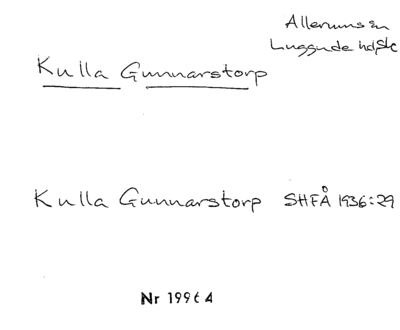 Allerums sn
Luggude hd, Sk
Kulla Gunnarstorp
Kulla Gunnarstorp SHFÅ 1936:29
Nr 19964